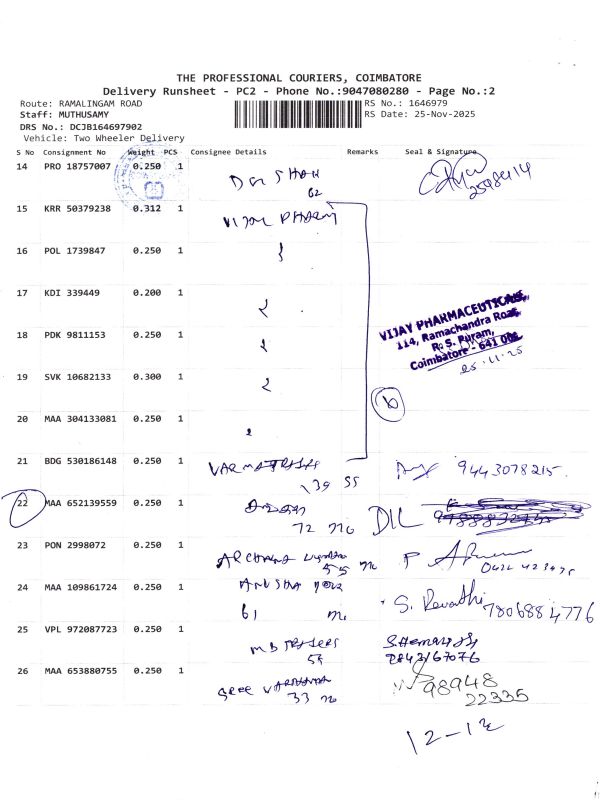 THE PROFESSIONAL COURIERS, COIMBATORE
Delivery Runsheet - PC2 - Phone No.:9047080280 - Page No.:2
Route: RAMALINGAM ROAD
RS No.: 1646979
Staff: MUTHUSAMY
RS Date: 25-Nov-2025
DRS No.: DCJB164697902
Vehicle: Two Wheeler Delivery
S No Consignment No Weight PCS Consignee Details Remarks Seal & Signature
14 PRO 18757007 0.250 1
62
15 KRR 50379238 0.312 1 VIJAY PHARM
16 POL 1739847 0.250 1
17 KDI 339449 0.200 1
VIJAY PHARMACEUTICALS,
114, Ramachandra Road,
R. S. Puram,
Coimbatore - 641 002
25.11.25
18 PDK 9811153 0.250 1
19 SVK 10682133 0.300 1
20 MAA 304133081 0.250 1
21 BDG 530186148 0.250 1 9443078215
139 55
22 MAA 652139559 0.250 1 DIL
72
23 PON 2998072 0.250 1 ARCHANA
55
24 MAA 109861724 0.250 1 ANUSHA S. Revathi 7806884776
61
25 VPL 972087723 0.250 1 MB TRADERS
55
26 MAA 653880755 0.250 1 SREE 98948
33 22335
12-12